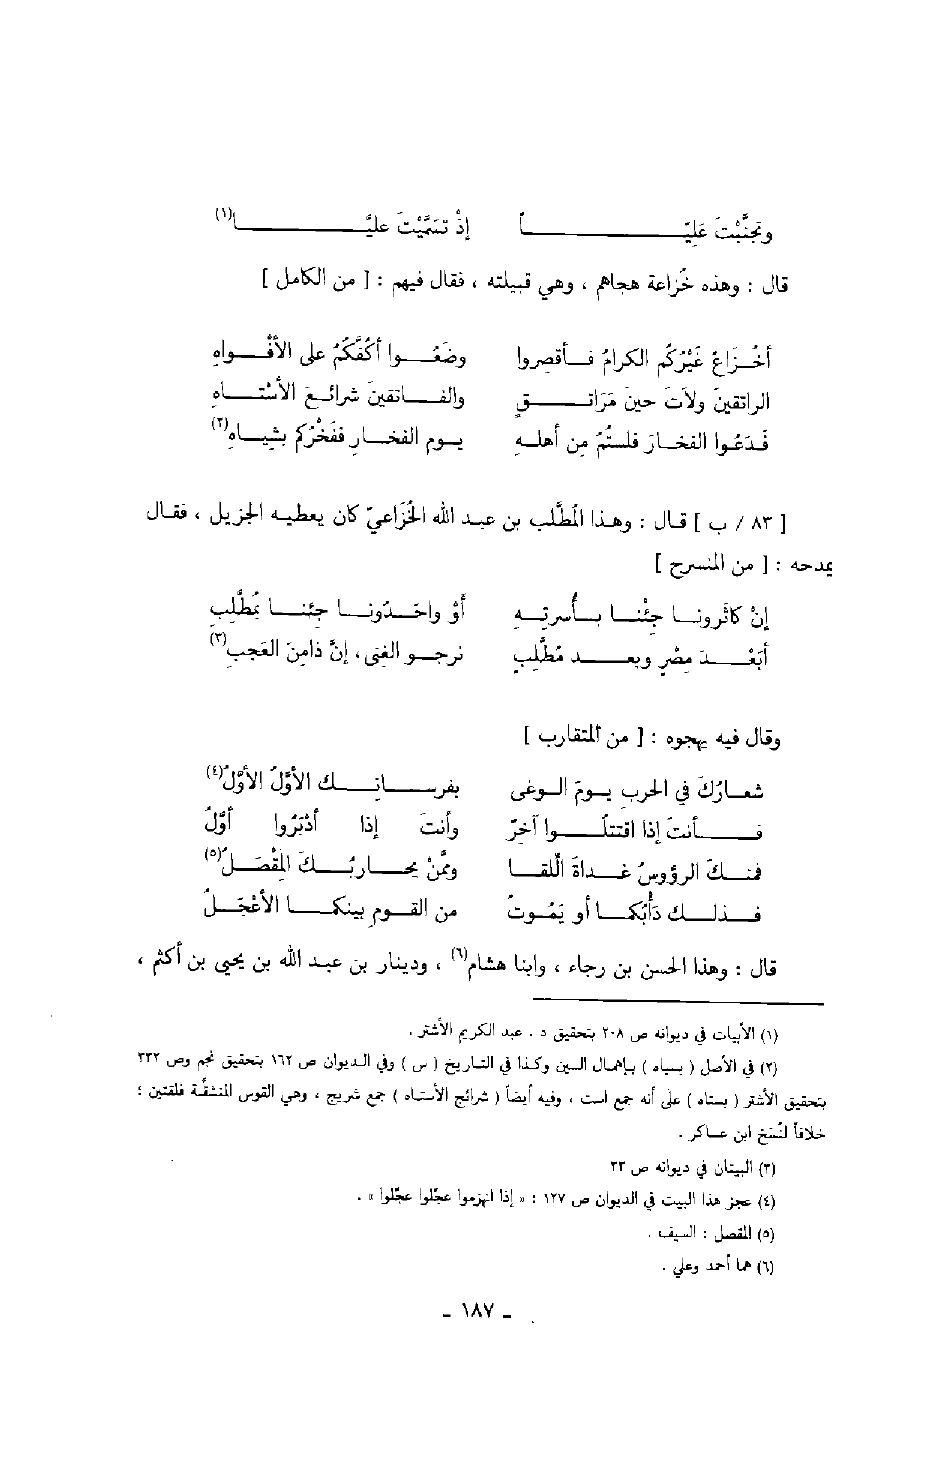 وتجنَّبْتَ عَلِيّـاً إذْ تسَمَّيْتَ عليَّـا(١)
قال : وهذه خُزاعة هجاهم ، وهي قبيلته ، فقال فيهم : [ من الكامل ]
أخُـزَاعَ غَيْرُكم الكرامُ فـأقصروا وضَعُـوا أكُفَّكُمُ على الأفْـواهِ
الراتقينَ ولاتَ حينَ مَرَاتـقٍ والفـاتقينَ شرائـعَ الأسْتـاهِ
فَـدَعُوا الفخـارَ فلستُمُ مِن أهلـهِ يـوم الفخـارِ ففَخْرُكم بِشِيـاهِ(٢)
[ ٨٣ / ب ] قـال : وهـذا المُطَّلب بن عبـد الله الخُزَاعيّ كان يعطيـه الجزيل ، فقـال
يمدحه : [ من المنسرح ]
إنْ كاثَرونـا جِئْنـا بـأُسرتِـهِ أوْ واحَـدُونـا جِئنـا بمُطَّلِبِ
أبَعْـدَ مِصْرٍ وبعـد مُطَّلِبٍ نرجـو الغِنى ، إنَّ ذامِنَ العَجَبِ(٣)
وقال فيه يهجوه : [ من المتقارب ]
شعـارُكَ في الحربِ يـومَ الـوغى بفرسـانِـكَ الأوَّلُ الأوَّلُ(٤)
فـأنتَ إذا اقتتلُـوا آخِرٌ وأنتَ إذا أدْبَرُوا أوَّلُ
فمنـكَ الرؤوسُ غـداةَ اللّقـا وممَّنْ يحـاربُـكَ المِقْصَـلُ(٥)
فـذلـك دَأبُكـا أو يَمُوتُ من القـومِ بينكـا الأعْجَـلُ
قال : وهذا الحسن بن رجاء ، وابنا هشام(٦) ، ودينار بن عبـد الله بن يحيى بن أكثم ،
(١) الأبيات في ديوانه ص ٢٠٨ بتحقيق د . عبد الكريم الأشتر .
(٢) في الأصل ( بسياه ) بإهمال السين وكذا في التاريخ ( س ) وفي الديوان ص ١٦٢ بتحقيق نجم وص ٣٣٢
بتحقيق الأشتر ( بستاه ) على أنه جمع است ، وفيه أيضاً ( شرائج الأستاه ) جمع شريج ، وهي القوس المنشقّة فلقتين ؛
خلافاً لنُسَخ ابن عساكر .
(٣) البيتان في ديوانه ص ٢٣
(٤) عجز هذا البيت في الديوان ص ١٢٧ : « إذا انهزموا عجّلوا عجّلوا » .
(٥) المقصل : السيف .
(٦) هما أحمد وعلي .
ـ ١٨٧ ـ